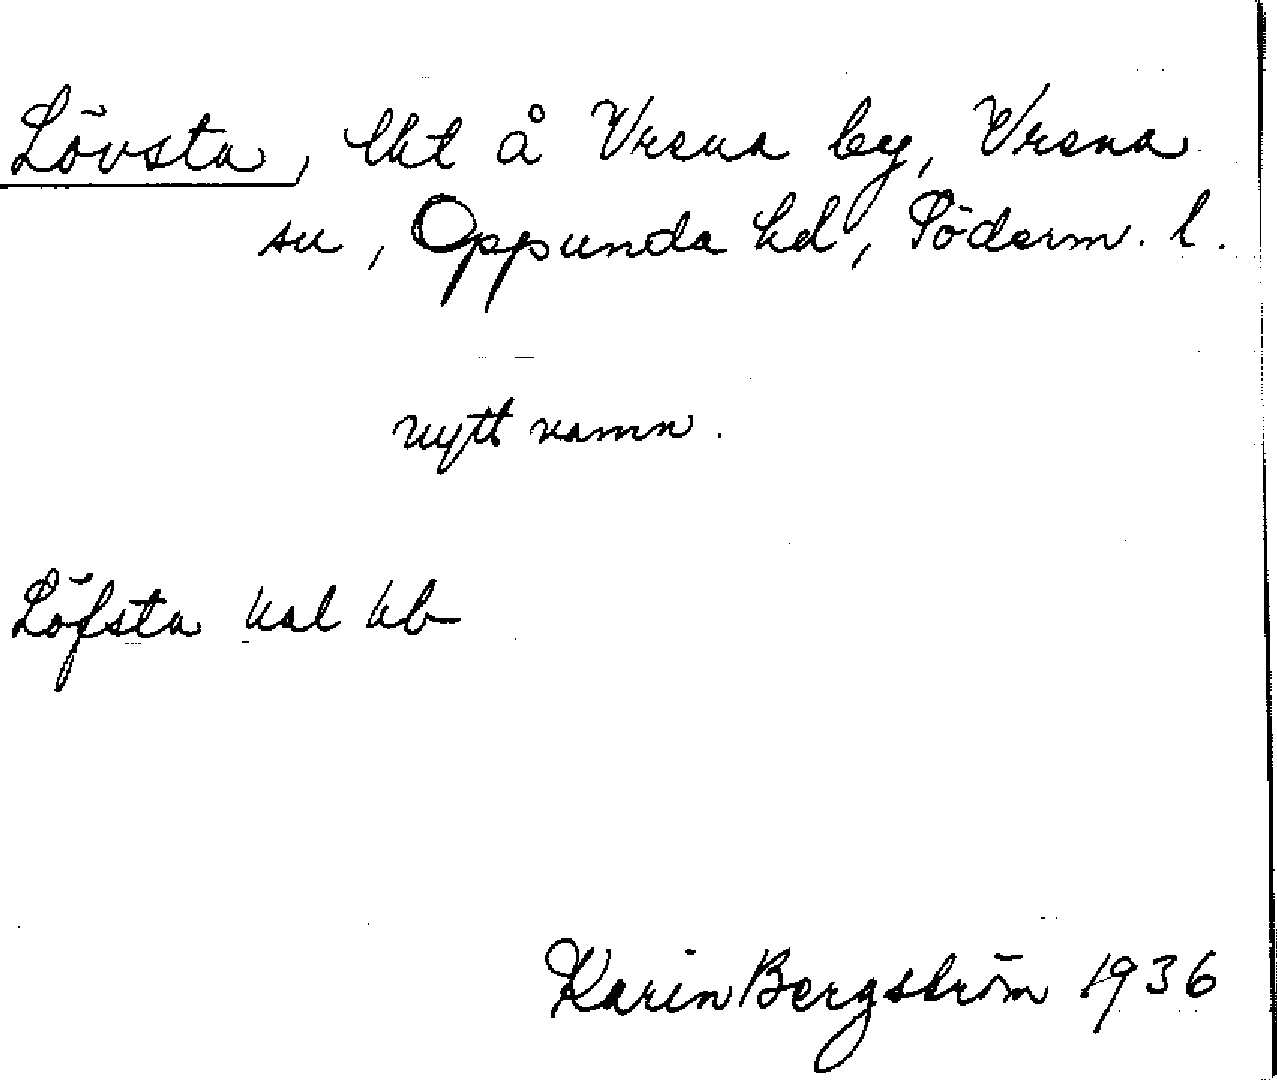 Lövsta, lht å Vrena by, Vrena
sn, Oppunda hd, Söderm. l.
nytt namn.
Löfsta hal kb
Karin Bergström 1936